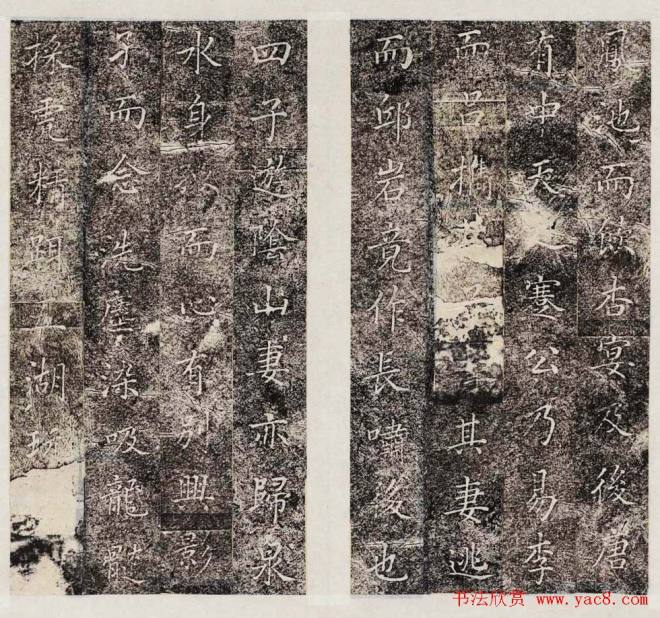 鳳池而飲杏宴及後唐
有申天之蹇公乃易李
而呂携其妻逃
而邱岩竟作長嘯後也
四子遊陰山妻亦歸泉
水身而心有別興影
子而念洗塵深吸龍髓
採霞精明五湖玩
书法欣赏 www.yac8.com